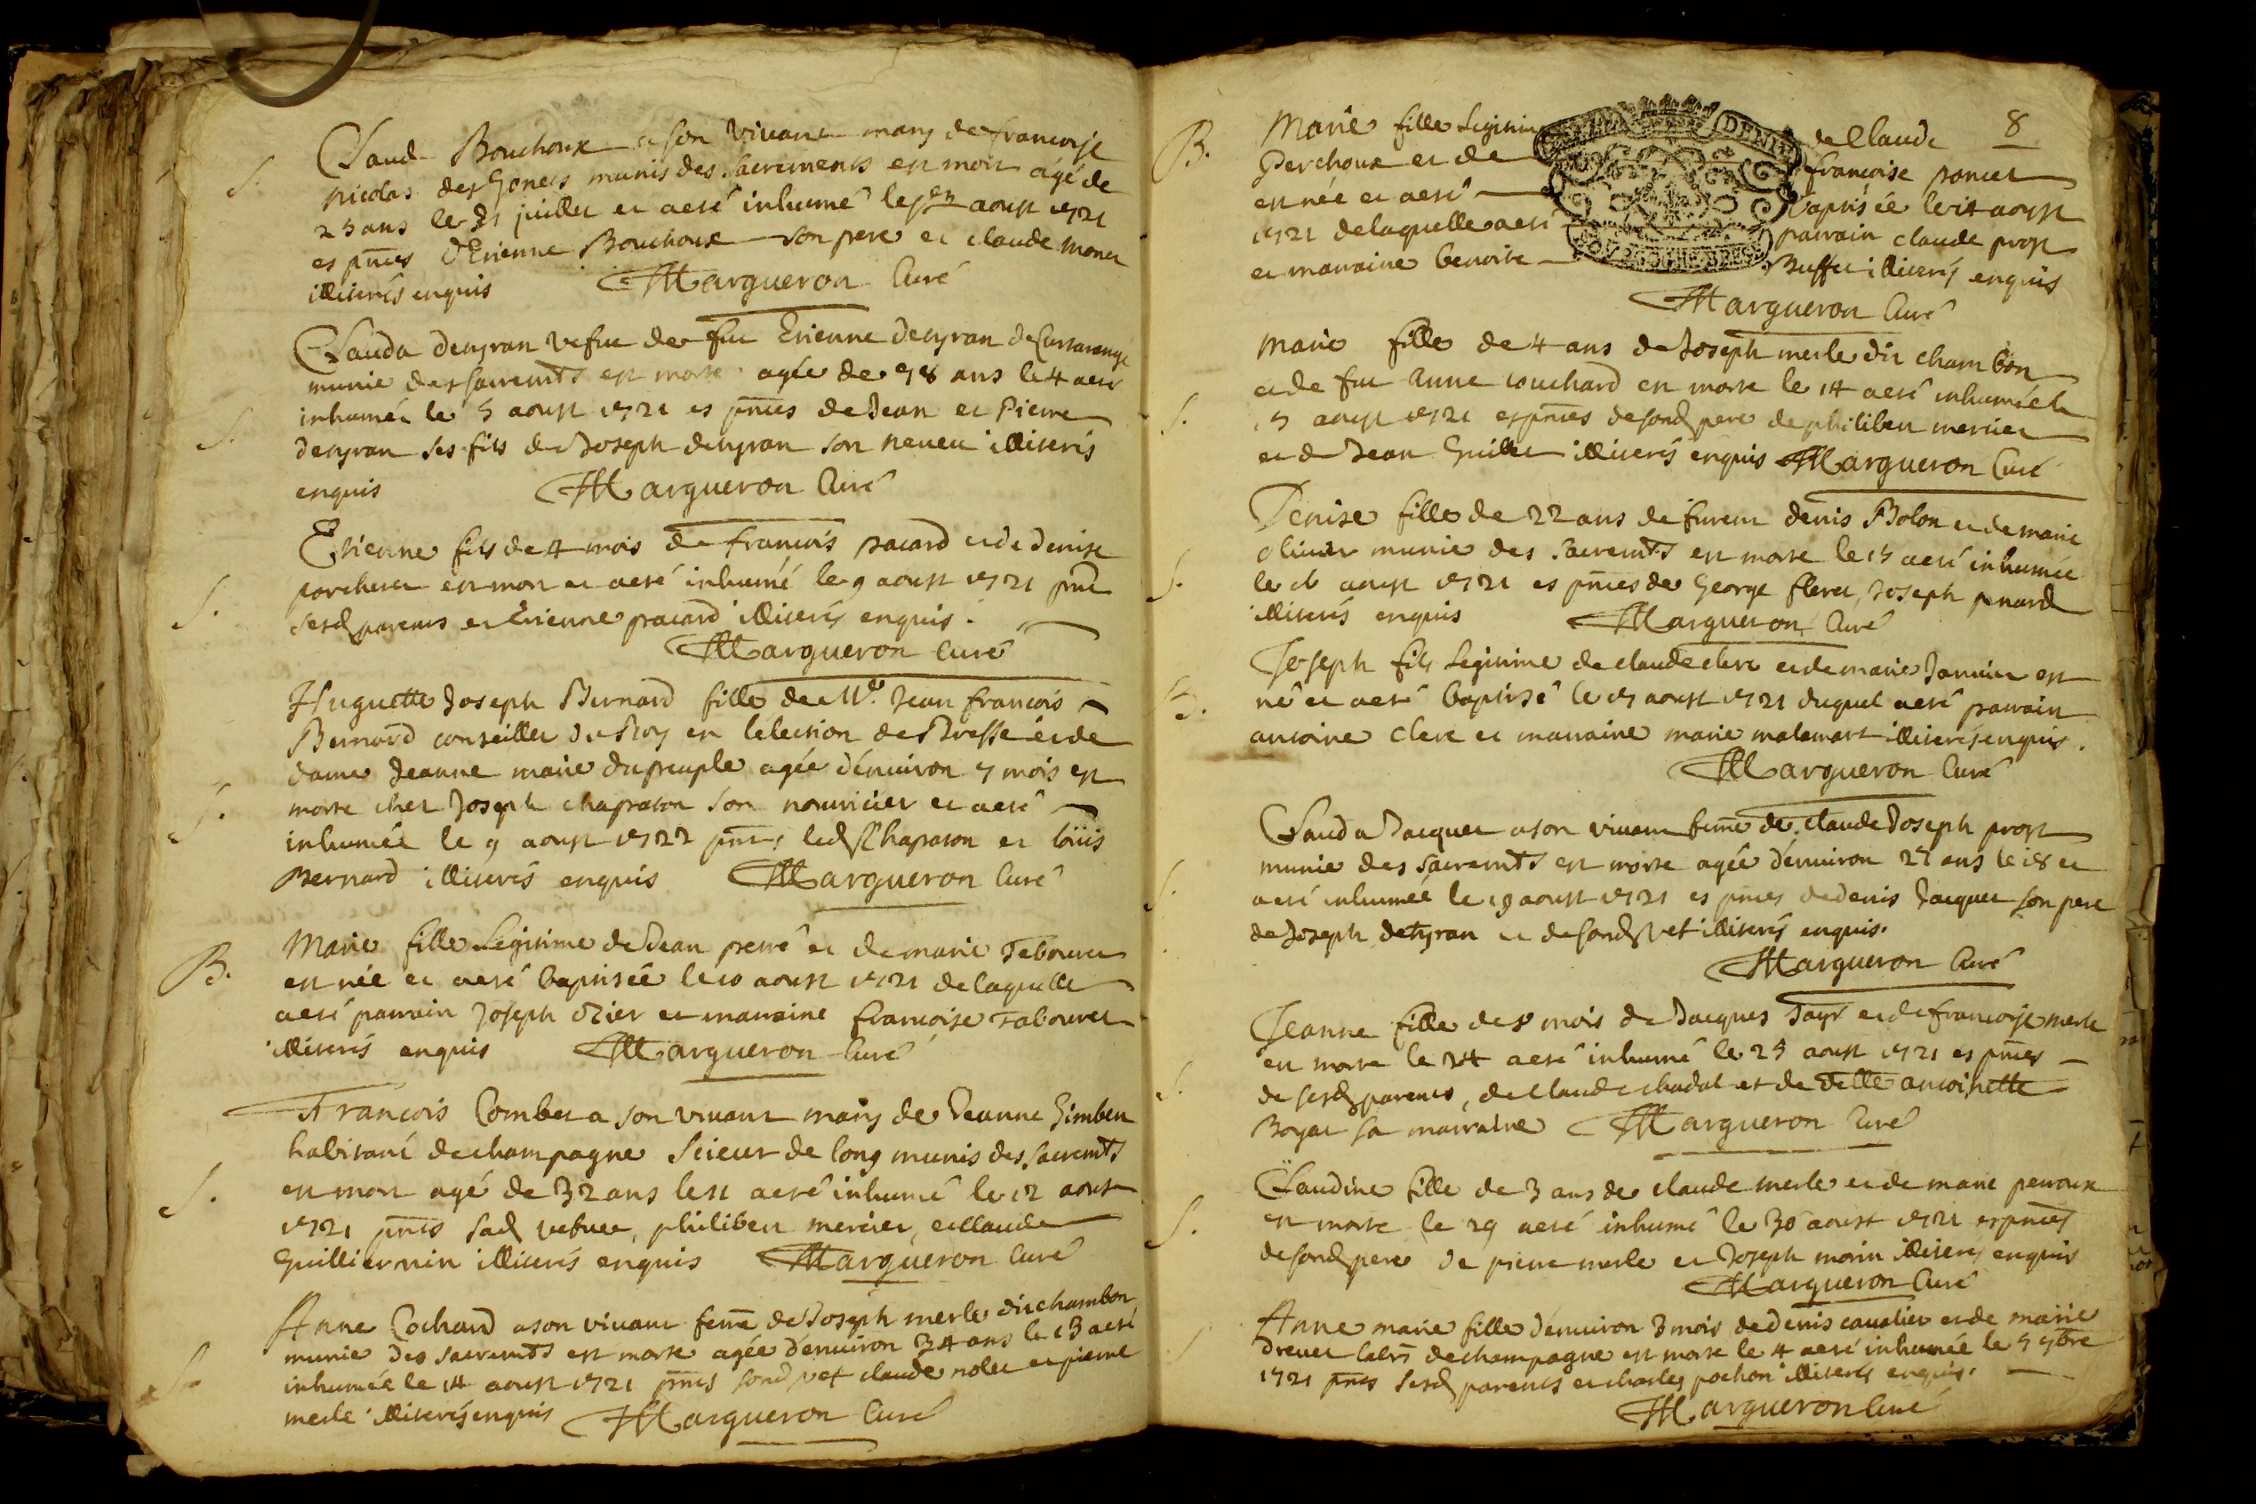 S. Claud Bouchoux a son vivant mary de francoise
nicolas des Gonets munis des sacrements est mort agé de
25 ans le 31 juillet et a eté inhumé le 1er aoust 1721
es pnces d'Etienne Bouchoux son pere et claude monet
illiterés enquis Margueron Curé
Clauda detyran vefve de feu Etienne detyran de
munie des sacremts est morte agée de 78 ans le 4 a eté
S. inhumée le 5 aoust 1721 es pnces de Jean et Pierre
detyran ses fils de Joseph detyran son neveu illiterés
enquis Margueron Curé
Etienne fils de 4 mois de francois pacard et de denise
S. porcheret est mort et a eté inhumé le 9 aoust 1721 pnt
sesd parents et Etienne pacard illiterés enquis.
Margueron Curé
Huguette Joseph Bernard fille de Mr. Jean francois
Bernard conseiller du Roy en lelection de Bresse et de
dame Jeanne marie dupeuple agée d'environ 7 mois est
S. morte chez Joseph chapaton son nourricier et a eté
inhumée le 9 aoust 1722 pnts led Chapaton et loüis
Bernard illiterés enquis Margueron Curé
B. Marie fille Legitime de Jean perré et de marie Tabouret
est née et a eté baptisée le 10 aoust 1721 de laquelle
a eté parrain Joseph ozier et marraine francoise Tabouret
illiterés enquis Margueron Curé
Francois Combet a son vivant mary de Jeanne Gimbert
habitant de champagne scieur de long munis des sacremts
S. est mort agé de 32 ans le 11 a eté inhumé le 12 aoust
1721 pnts sad vefve, philibert mercier, et claude
Guilliermin illiterés enquis Margueron Curé
Anne Cochard a son vivant feme de Joseph merle dit chambon
munie des sacremts est morte agée d'environ 34 ans le 13 a eté
S. inhumée le 14 aoust 1721 pnts sond vef claude nolet et pierre
merle illiterés enquis Margueron Curé
8
B. Marie fille Legitim de Claude
Perchoux et de francoise poncet
est née et a eté baptisée le 14 aoust
1721 de laquelle a eté parrain claude prost
et marraine benoite Buffet illiterés enquis
Margueron Curé
Marie fille de 4 ans de Joseph merle dit chambon
et de feu Anne couchard est morte le 14 a eté inhumée le
S. 15 aoust 1721 es pnces de sond pere de philibert mercier
et de Jean Guillet illiterés enquis Margueron Curé
Denise fille de 22 ans de furent denis Bolon et de marie
olivier munie des sacremts est morte le 15 a eté inhumée
S. le 16 aoust 1721 es pnces de George floret, Joseph penard
illiterés enquis Margueron Curé
Joseph fils Legitime de claude clerc et de marie Janvier est
B. né et a eté baptisé le 17 aoust 1721 duquel a eté parrain
antoine clerc et marraine marie malamart illiterés enquis.
Margueron Curé
Clauda Jacquet a son vivant feme de claude Joseph prost
S. munie des sacremts est morte agée d'environ 27 ans le 18 et
a eté inhumée le 19 aoust 1721 es pnces de denis Jacquet son pere
de Joseph detyran et de sond vef illiterés enquis.
Margueron Curé
Jeanne fille de 8 mois de Jacques Tayr et de francoise merle
est morte le 24 a eté inhumé le 25 aoust 1721 es pnces
S. de sesd parents, de claude chadal et de delle antoinette
Boyat sa marraine Margueron Curé
Claudine fille de 3 ans de claude merle et de marie perroux
S. est morte le 29 a eté inhumé le 30 aoust 1721 es pnces
de sond pere de pierre merle et Joseph morin illiterés enquis
Margueron Curé
Anne marie fille d'environ 3 mois de denis cavalier et de marie
drevet de champagne est morte le 4 a eté inhumée le 5 7bre
1721 pnts sesd parents et charles pochon illiterés enquis.
Margueron Curé